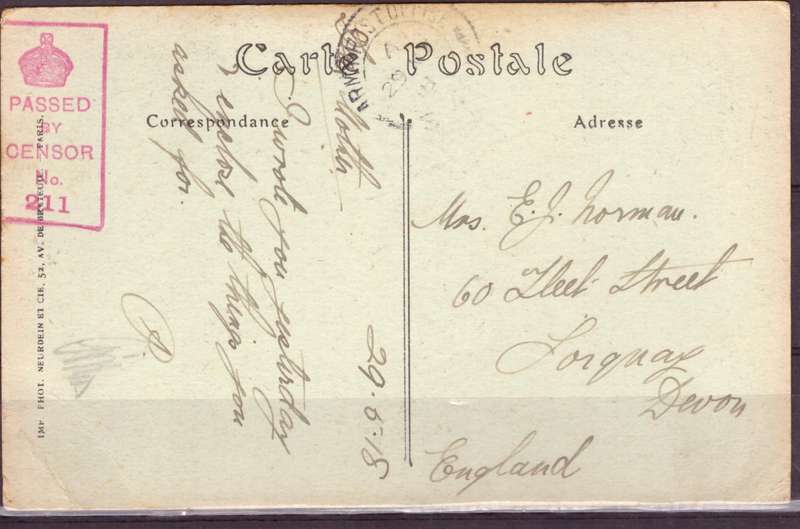 Carte Postale
ARMY POST OFFICE
PASSED
BY
CENSOR
No.
211
Correspondance
Adresse
29.5.18
Mother
I wrote you yesterday
& enclose the things you
asked for.
P.
Mrs. E. J. Norman.
60 Fleet Street
Torquay
Devon
England
IMP. PHOT. NEURDEIN ET CIE, 52, AV. DE BRETEUIL - PARIS.